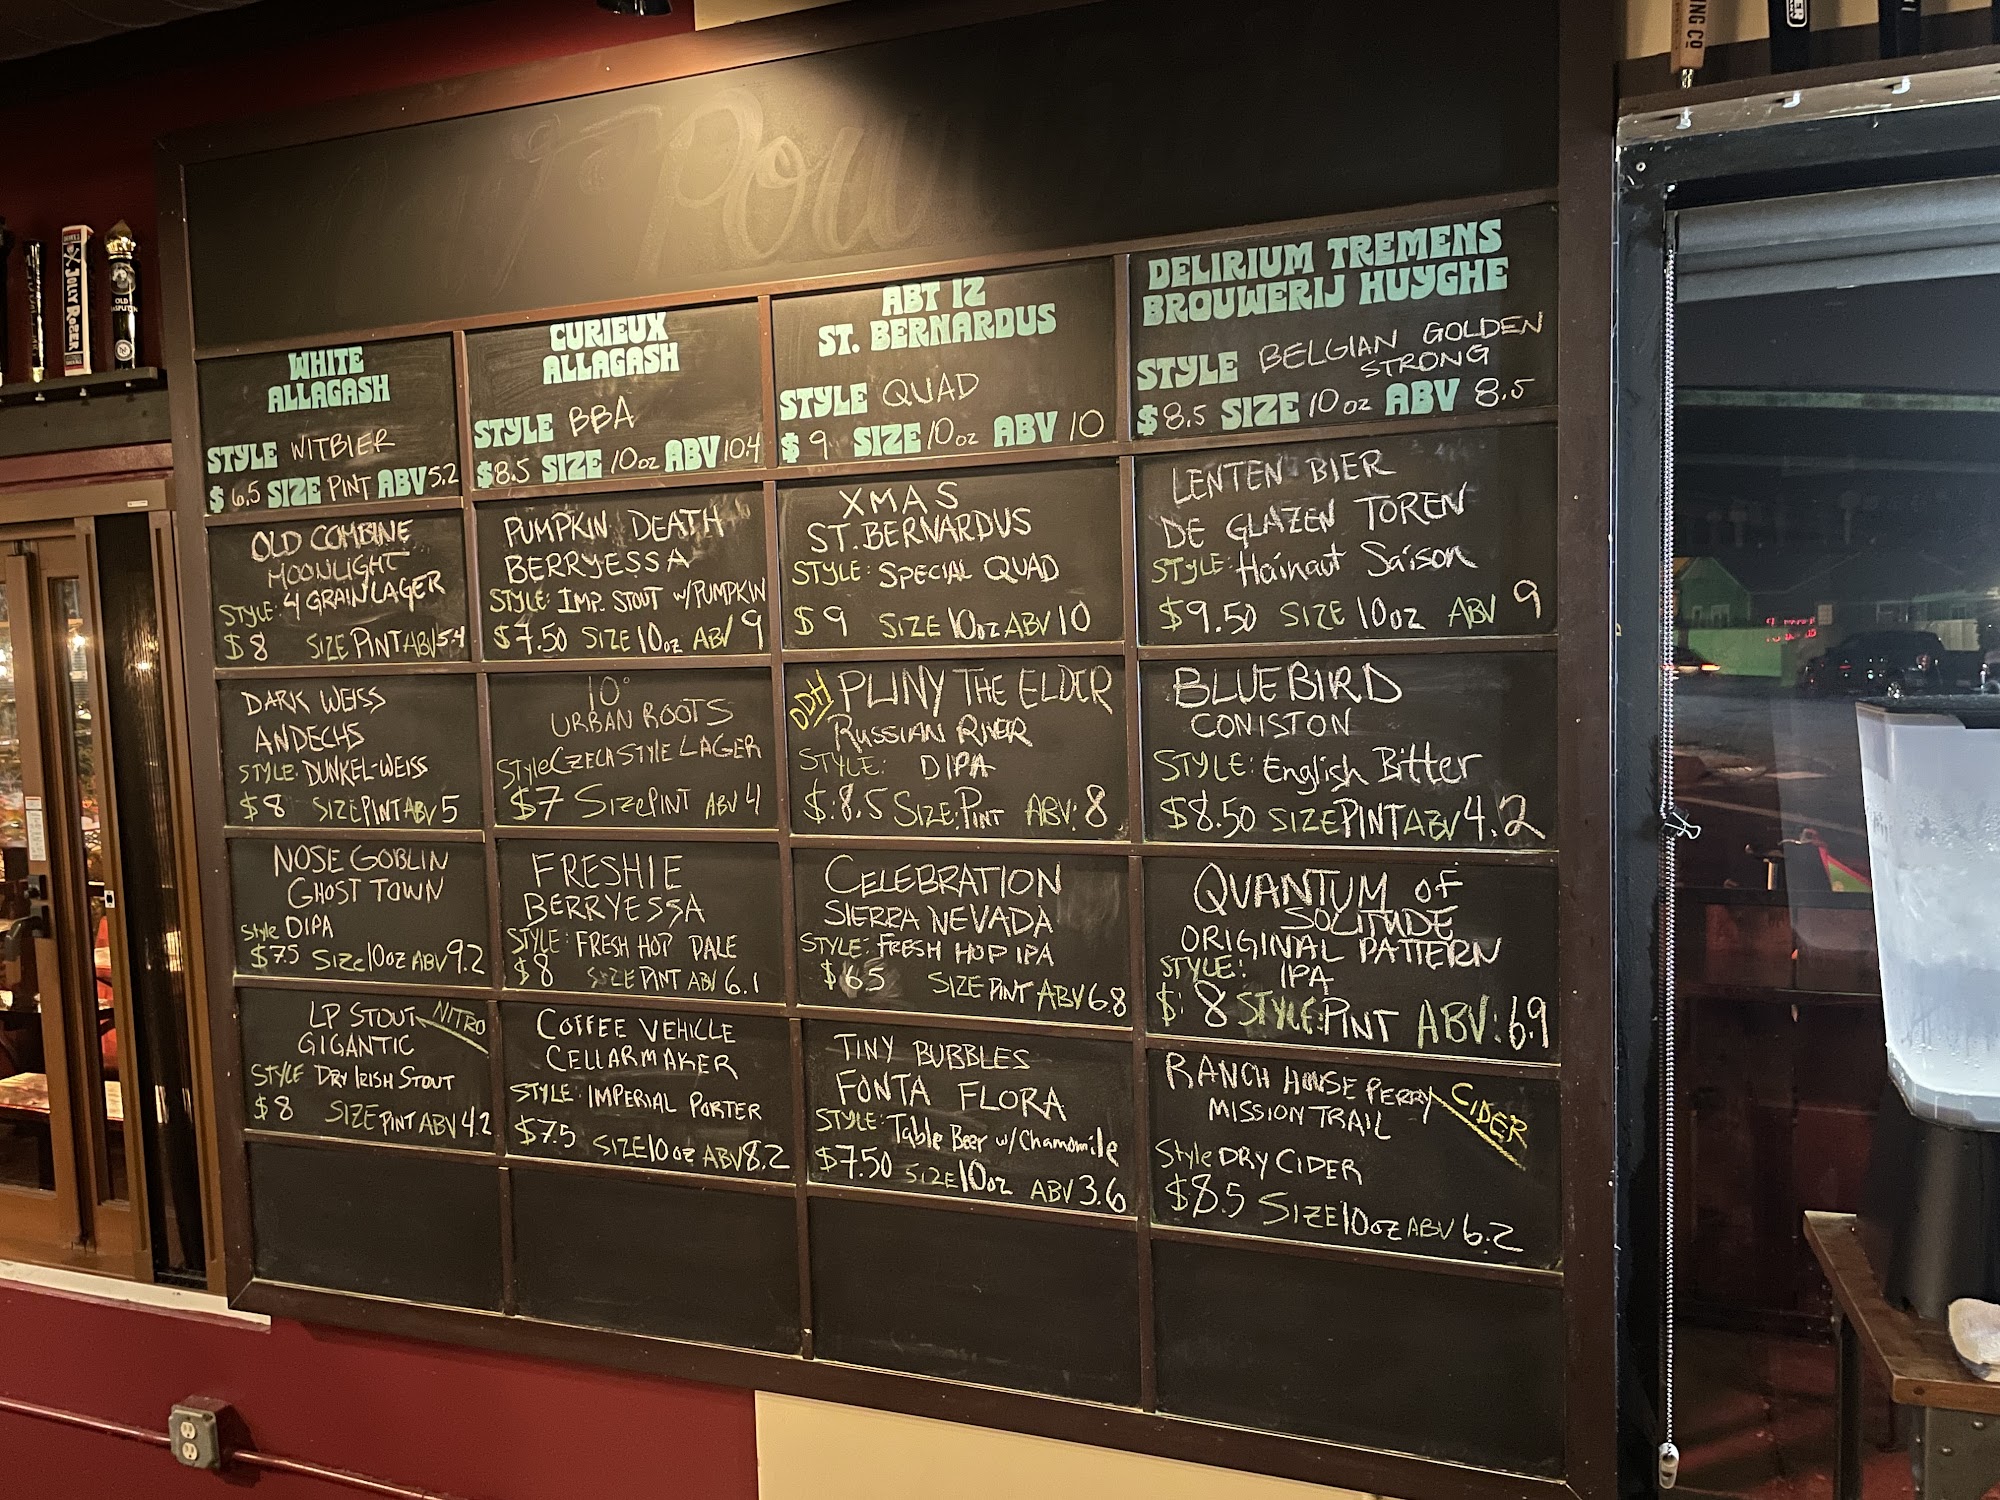 Pour
WHITE
ALLAGASH
STYLE WITBIER
$ 6.5 SIZE PINT ABV 5.2
CURIEUX
ALLAGASH
STYLE BBA
$8.5 SIZE 10oz ABV 10.4
ABT 12
ST. BERNARDUS
STYLE QUAD
$ 9 SIZE 10oz ABV 10
DELIRIUM TREMENS
BROUWERIJ HUYGHE
STYLE BELGIAN GOLDEN
STRONG
$8.5 SIZE 10oz ABV 8.5
OLD COMBINE
MOONLIGHT
STYLE: 4 GRAIN LAGER
$8 SIZE PINT ABV 5.4
PUMPKIN DEATH
BERRYESSA
STYLE: IMP. STOUT W/PUMPKIN
$7.50 SIZE 10oz ABV 9
XMAS
ST. BERNARDUS
STYLE: SPECIAL QUAD
$9 SIZE 10oz ABV 10
LENTEN BIER
DE GLAZEN TOREN
STYLE: Hainaut Saison
$9.50 SIZE 10oz ABV 9
DARK WEISS
ANDECHS
STYLE: DUNKEL-WEISS
$8 SIZE PINT ABV 5
10°
URBAN ROOTS
Style CZECH STYLE LAGER
$7 SIZE PINT ABV 4
DDH PLINY THE ELDER
RUSSIAN RIVER
STYLE: DIPA
$:8.5 SIZE: PINT ABV: 8
BLUEBIRD
CONISTON
STYLE: English Bitter
$8.50 SIZE PINT ABV 4.2
NOSE GOBLIN
GHOST TOWN
Style DIPA
$7.5 SIZE 10oz ABV 9.2
FRESHIE
BERRYESSA
STYLE: FRESH HOP PALE
$8 SIZE PINT ABV 6.1
CELEBRATION
SIERRA NEVADA
STYLE: FRESH HOP IPA
$6.5 SIZE PINT ABV 6.8
QUANTUM OF
SOLITUDE
ORIGINAL PATTERN
STYLE: IPA
$: 8 STYLE: PINT ABV: 6.9
LP STOUT NITRO
GIGANTIC
STYLE DRY IRISH STOUT
$8 SIZE PINT ABV 4.2
COFFEE VEHICLE
CELLARMAKER
STYLE: IMPERIAL PORTER
$7.5 SIZE 10oz ABV 8.2
TINY BUBBLES
FONTA FLORA
STYLE: Table Beer w/Chamomile
$7.50 SIZE 10oz ABV 3.6
RANCH HOUSE PERRY CIDER
MISSION TRAIL
Style DRY CIDER
$8.5 SIZE 10oz ABV 6.2
JOLLY ROGER
OLD
ING CO